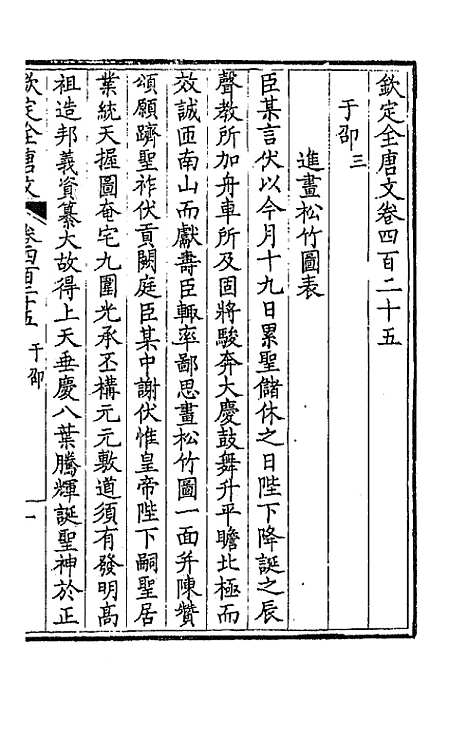 欽定全唐文卷四百二十五
于邵三
進畫松竹圖表
臣某言伏以今月十九日累聖儲休之日陛下降誕之辰
聲教所加舟車所及固將駿奔大慶鼓舞升平瞻北極而
效誠匝南山而獻壽臣輒率鄙思畫松竹圖一面并陳贊
頌願躋聖祚伏貢闕庭臣某中謝伏惟皇帝陛下嗣聖居
業統天握圖奄宅九圍光承丕構元元敷道須有發明高
祖造邦義資纂大故得上天垂慶八葉騰輝誕聖神於正
欽定全唐文 卷四百二十五 于邵 一